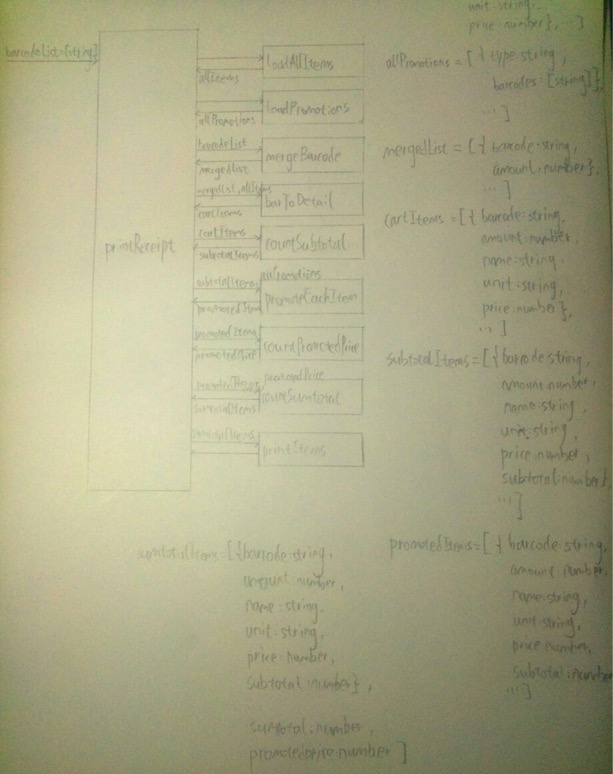 unit: string,
price: number}, ...]
barcodeList=[string]
printReceipt
loadAllItems
allItems
loadPromotions
allPromotions
barcodeList
mergeBarcode
mergedList
mergedList, allItems
barToDetail
cartItems
cartItems
countSubtotal
subtotalItems
subtotalItems
allPromotions
promoteEachItem
promotedItems
countPromotedPrice
promotedPrice
promotedItems
promotedPrice
sumtotalItems
printItems
allPromotions = [{type:string,
barcodes:[string]},
...]
mergedList = [{barcode:string,
amount:number},
...]
cartItems = [{barcode:string,
amount:number,
name:string,
unit:string,
price:number},
...]
subtotalItems = [{barcode:string,
amount:number,
name:string,
unit:string,
price:number,
subtotal:number},
...]
promotedItems = [{barcode:string,
amount:number,
name:string,
unit:string,
price:number,
subtotal:number
...]
sumtotalItems = [{barcode:string,
amount:number,
name:string,
unit:string,
price:number,
subtotal:number},
sumtotal:number,
promotedPrice:number]